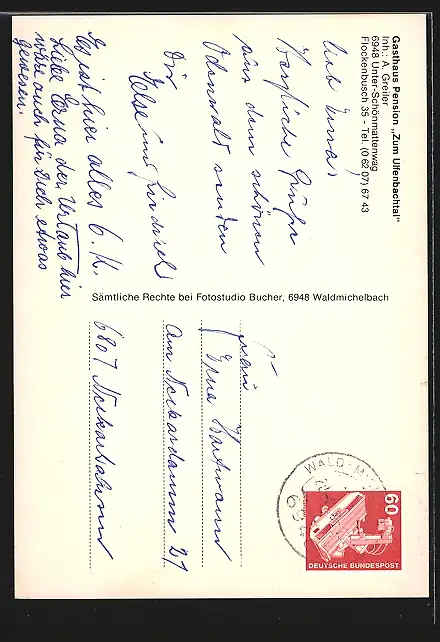 Gasthaus Pension „Zum Ulfenbachtal"
Inh.: A. Greiler
6948 Unter-Schönmattenwag
Flockenbusch 35 - Tel. (0 62 07) 67 43
Liebe Erna,
Herzliche Grüße
aus dem schönen
Odenwalt senden
Dir
Else und
Es ist hier alles O.K.
Liebe Erna der Urlaub hier
wäre auch für Dich etwas
gewesen.
Sämtliche Rechte bei Fotostudio Bucher, 6948 Waldmichelbach
Frau
Erna Hartmann
Am Neckardamm 21
6807 Neckarhausen
WALD-M
69
60
DEUTSCHE BUNDESPOST